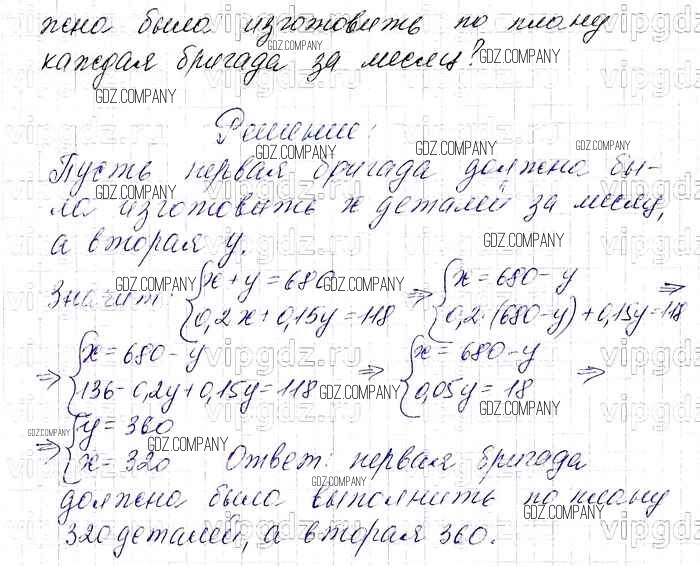 жно было изготовить по плану
каждая бригада за месяц?
Решение:
Пусть первая бригада должна бы-
ла изготовить x деталей за месяц,
а вторая y.
Значит: {x + y = 680 => {x = 680 - y =>
{0,2x + 0,15y = 118 {0,2·(680-y) + 0,15y = 118
=> {x = 680 - y => {x = 680 - y =>
{136 - 0,2y + 0,15y = 118 {0,05y = 18
=> {y = 360
{x = 320 Ответ: первая бригада
должна была выполнить по плану
320 деталей, а вторая 360.
GDZ.COMPANY
vipgdz.ru